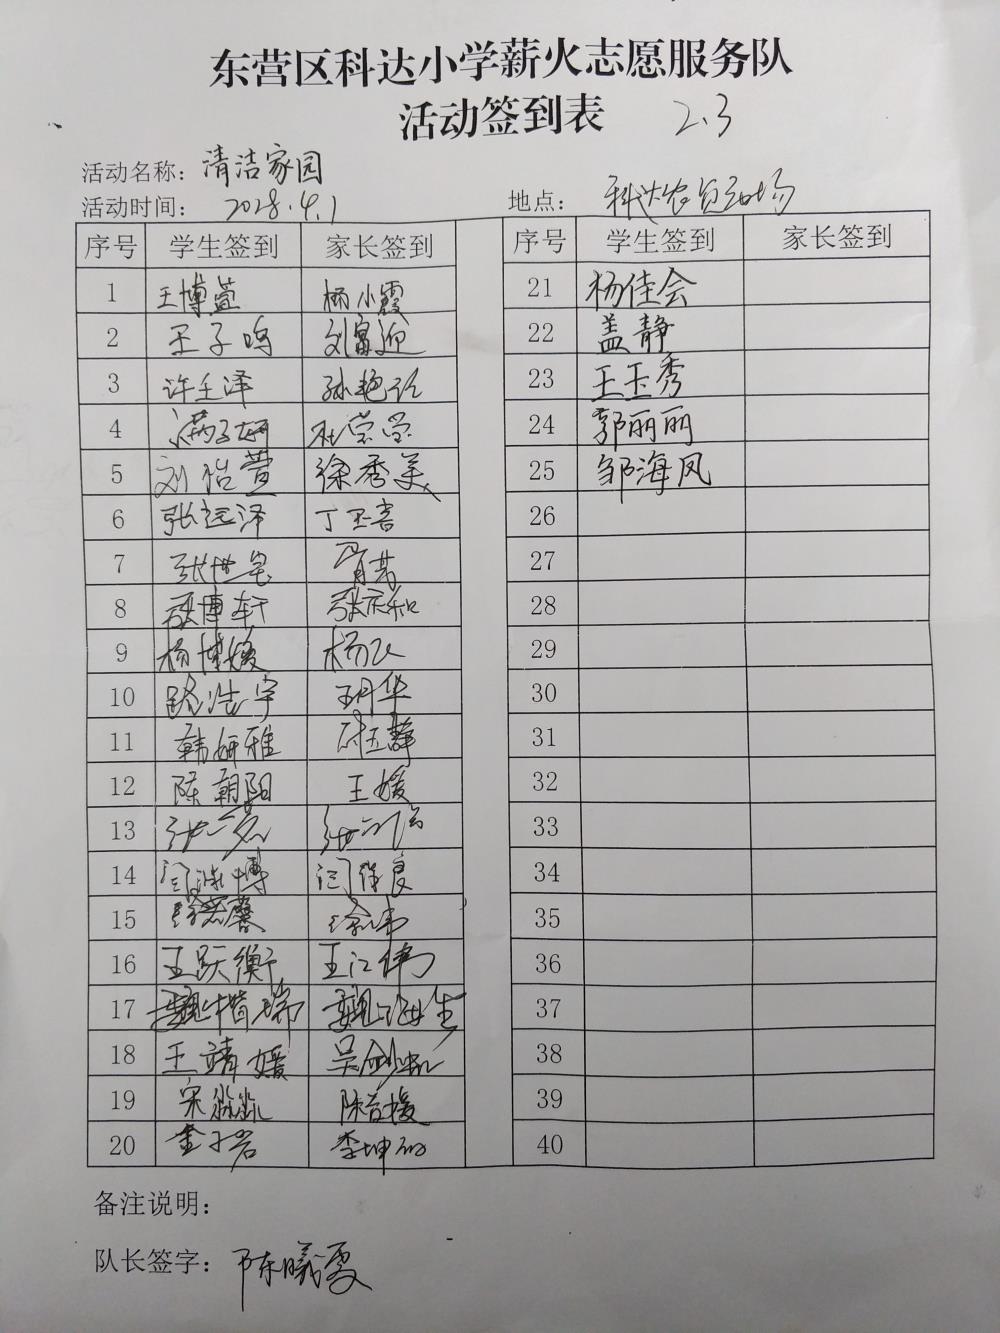 东营区科达小学薪火志愿服务队
活动签到表 2.3
活动名称：清洁家园
活动时间： 2018.4.1 地点：
序号 学生签到 家长签到
1 王博萱 杨小霞
2 王子鸣 刘富迎
3 许壬泽 孙艳
4 满子
5 刘怡萱 徐秀美
6 张远泽 丁玉喜
7 张世 肖芳
8 张博轩 张庆和
9 杨博媛 杨飞
10 路浩宇 王丹华
11 韩妍雅 静
12 陈朝阳 王媛
13 张一
14 闫 博 闫 良
15 徐 馨 徐伟
16 王跃衡 王江伟
17 魏楷瑞 魏海生
18 王靖媛 吴
19 宋淼淼 陈 媛
20 金子岩 李坤
序号 学生签到 家长签到
21 杨佳会
22 盖静
23 王玉秀
24 郭丽丽
25 邹海凤
26
27
28
29
30
31
32
33
34
35
36
37
38
39
40
备注说明：
队长签字：陈曦雯